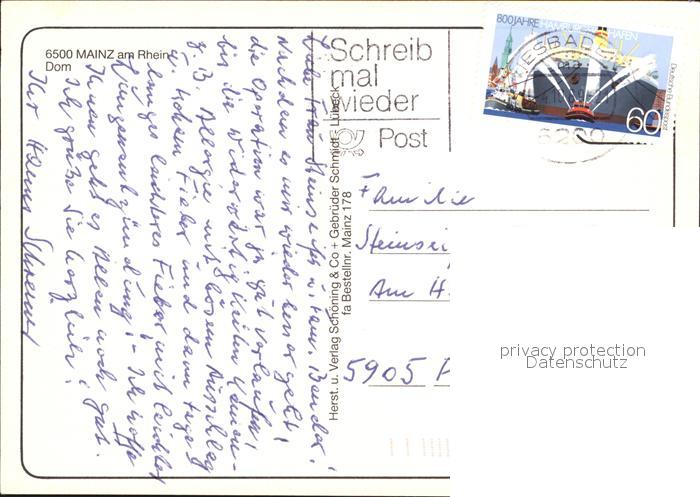 6500 MAINZ am Rhein
Dom
Schreib
mal
wieder
Post
800 JAHRE HAMBURGER HAFEN
WIESBADEN
6200
Deutsche Bundespost
60
Herst. u. Verlag Schöning & Co + Gebrüder Schmidt - Lübeck
fa Bestellnr. Mainz 178
Familie
Am H
5905
Liebe Frau u. Fam. Bender!
Nachdem es mir wieder besser geht,
die Operation war ja gut verlaufen,
bis die widerwärtigen Keime kamen
z. B. Allergie mit bösem Ausschlag
u. hohem Fieber und dann tage
langes Fieber mit leichter
Lungenentzündung! - Ich hoffe
Ihnen geht es Allen noch gut.
Ich grüße Sie herzlich!
Ihr
privacy protection
Datenschutz